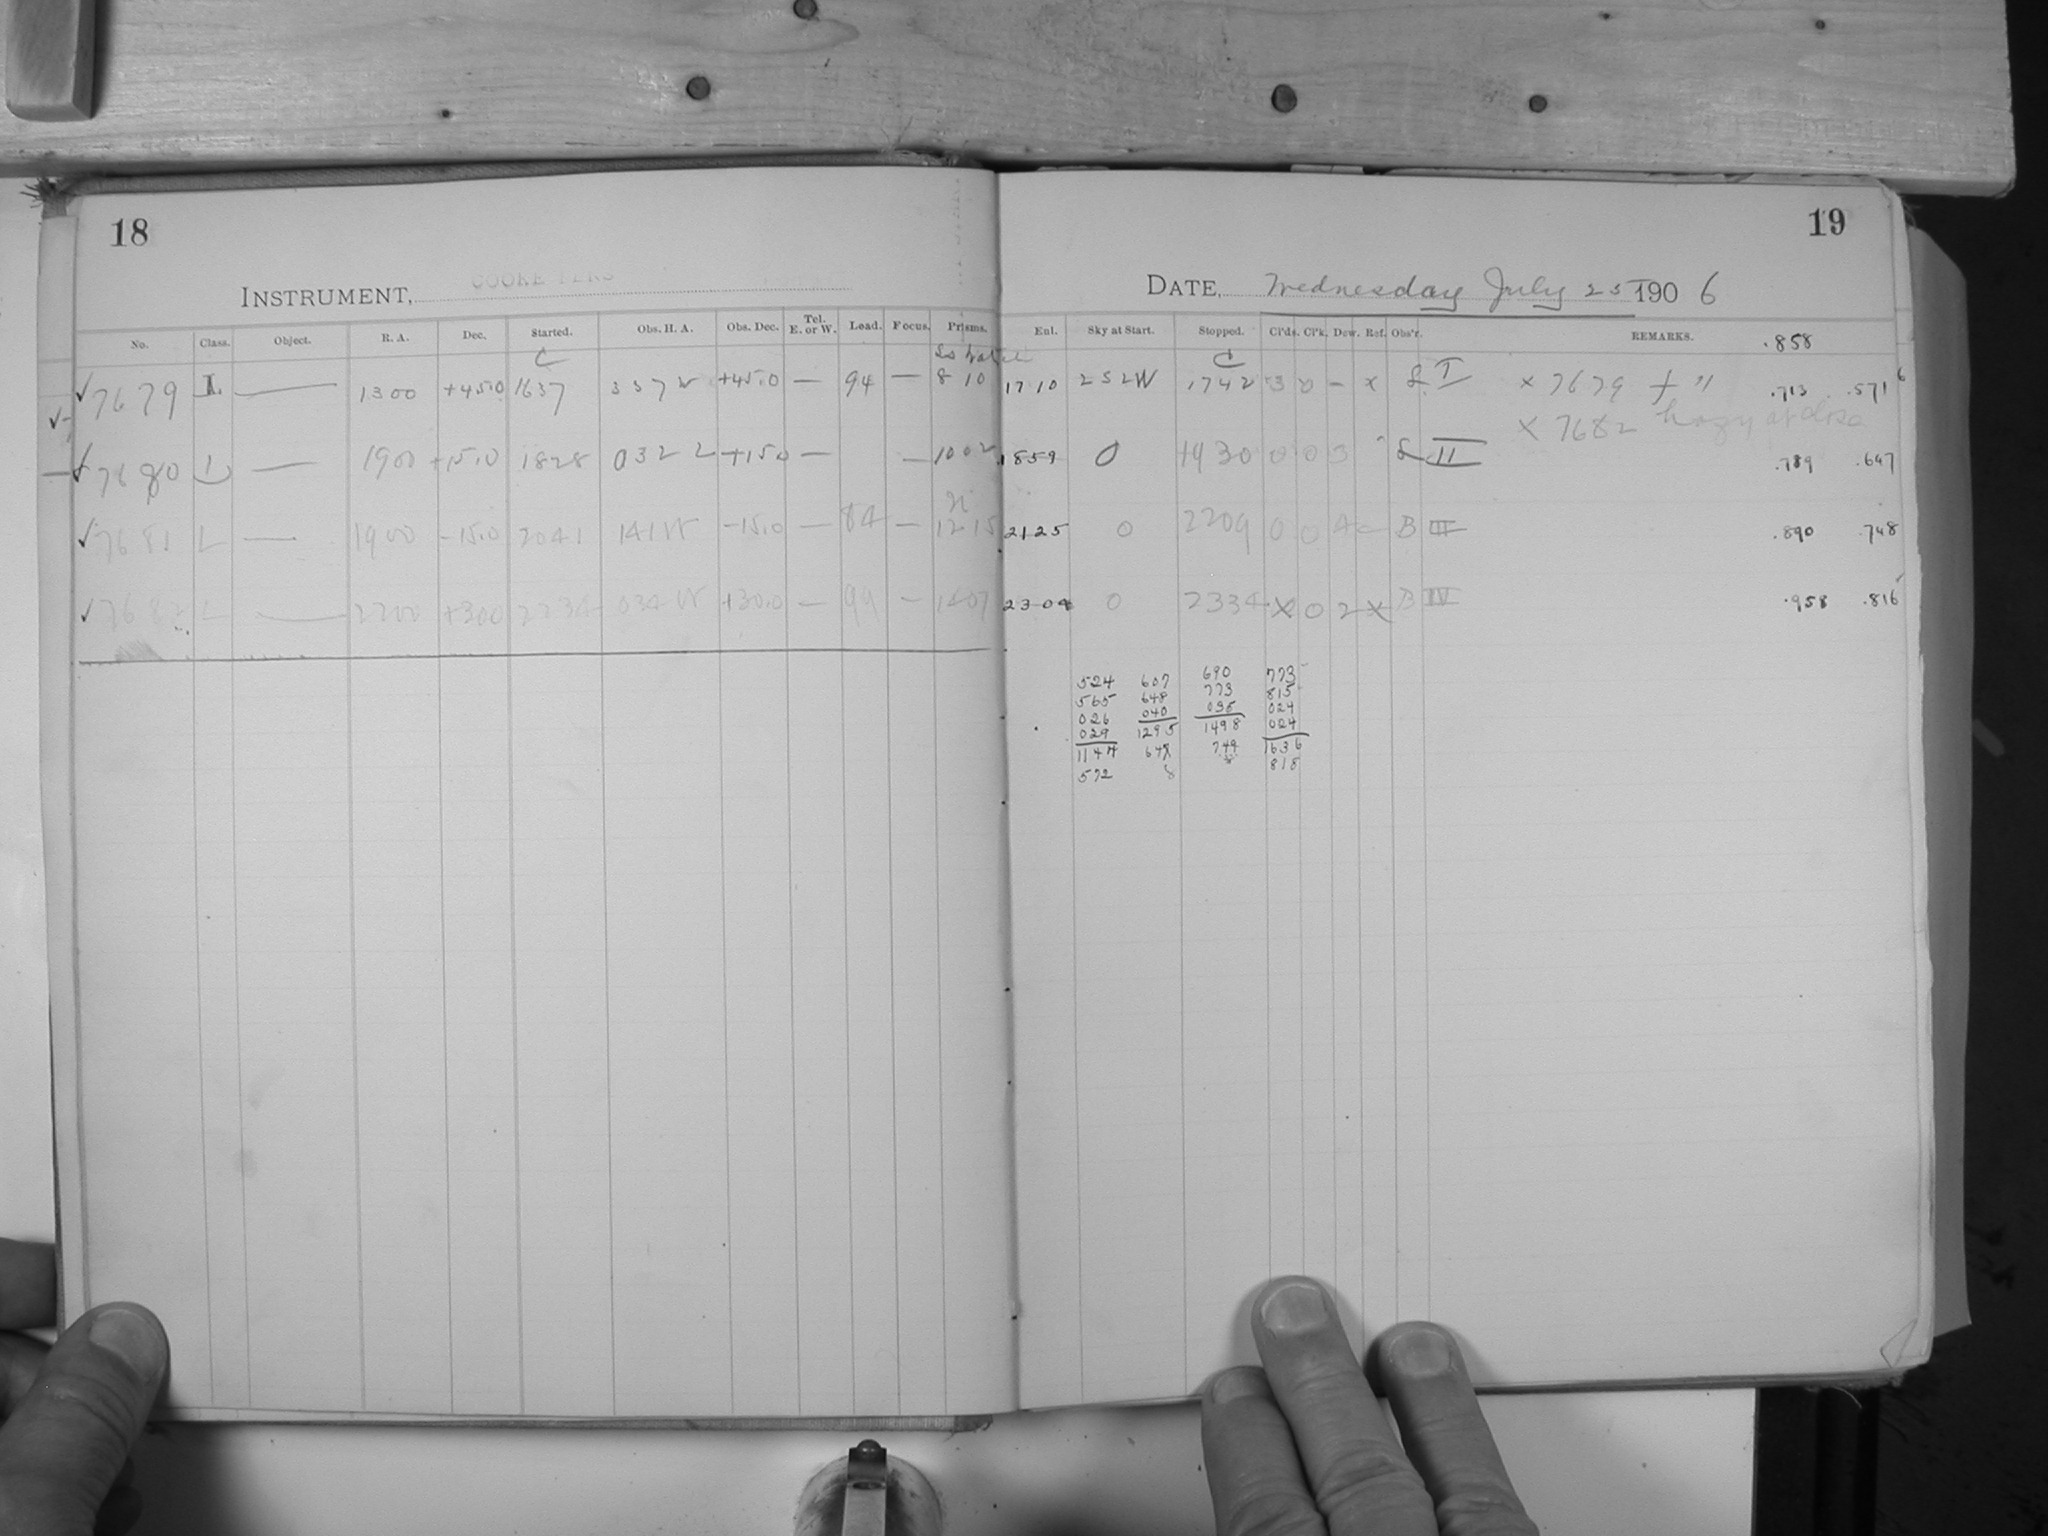 18
19
INSTRUMENT, COOKE
DATE, Wednesday July 25 1906
No. Class. Object. R. A. Dec. Started. Obs. H. A. Obs. Dec. Tel. E. or W. Load. Focus. Prisms. Enl. Sky at Start. Stopped. Cl'ds. Cl'k. Dew. Ref. Obs'r. REMARKS. .858
✓ 7679 L — 1300 +45.0 1637 337 W +45.0 — 94 — 8 10 1710 252W 1742 3 0 – x L I x 7679 .713 .571
x 7682 hazy at close
✓ 7680 L — 1900 +15.0 1828 032 +15.0 — — 1002 1859 0 1930 0 0 3 L II .789 .647
✓ 7681 L — 1900 -15.0 2041 141W -15.0 — 84 — 1215 2125 0 2209 0 0 4 – B III .890 .748
✓ 7682 L — 2200 +30.0 2234 034 W +30.0 — 99 — 1407 2304 0 2334 x 0 2 x B IV .958 .816
524 607 690 773
565 648 773 815
026 040 035 024
029 1295 1498 024
1144 749 1636
572 8 818